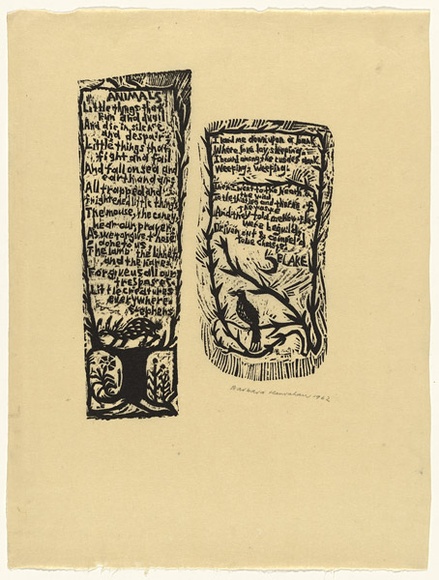 ANIMALS
Little things that
run and quail
And die in silence
and despair
Little things that
fight and fail
And fall on sea and
earth and air
All trapped and
frightened little things
The mouse, the coney,
hear our prayer
As we forgive those
done to us
The lamb the linnet
and the hare
Forgive us all our
trespasses
Little creatures
everywhere
Stephens
I laid me down upon a bank
Where love lay sleeping
I heard among the rushes dank
Weeping, weeping
Then I went to the heath &
the wild
To the thistles and thorns
of the waste
And they told me how they
were beguiled
Driven out & compel'd
to be chaste
BLAKE
Barbara 1962